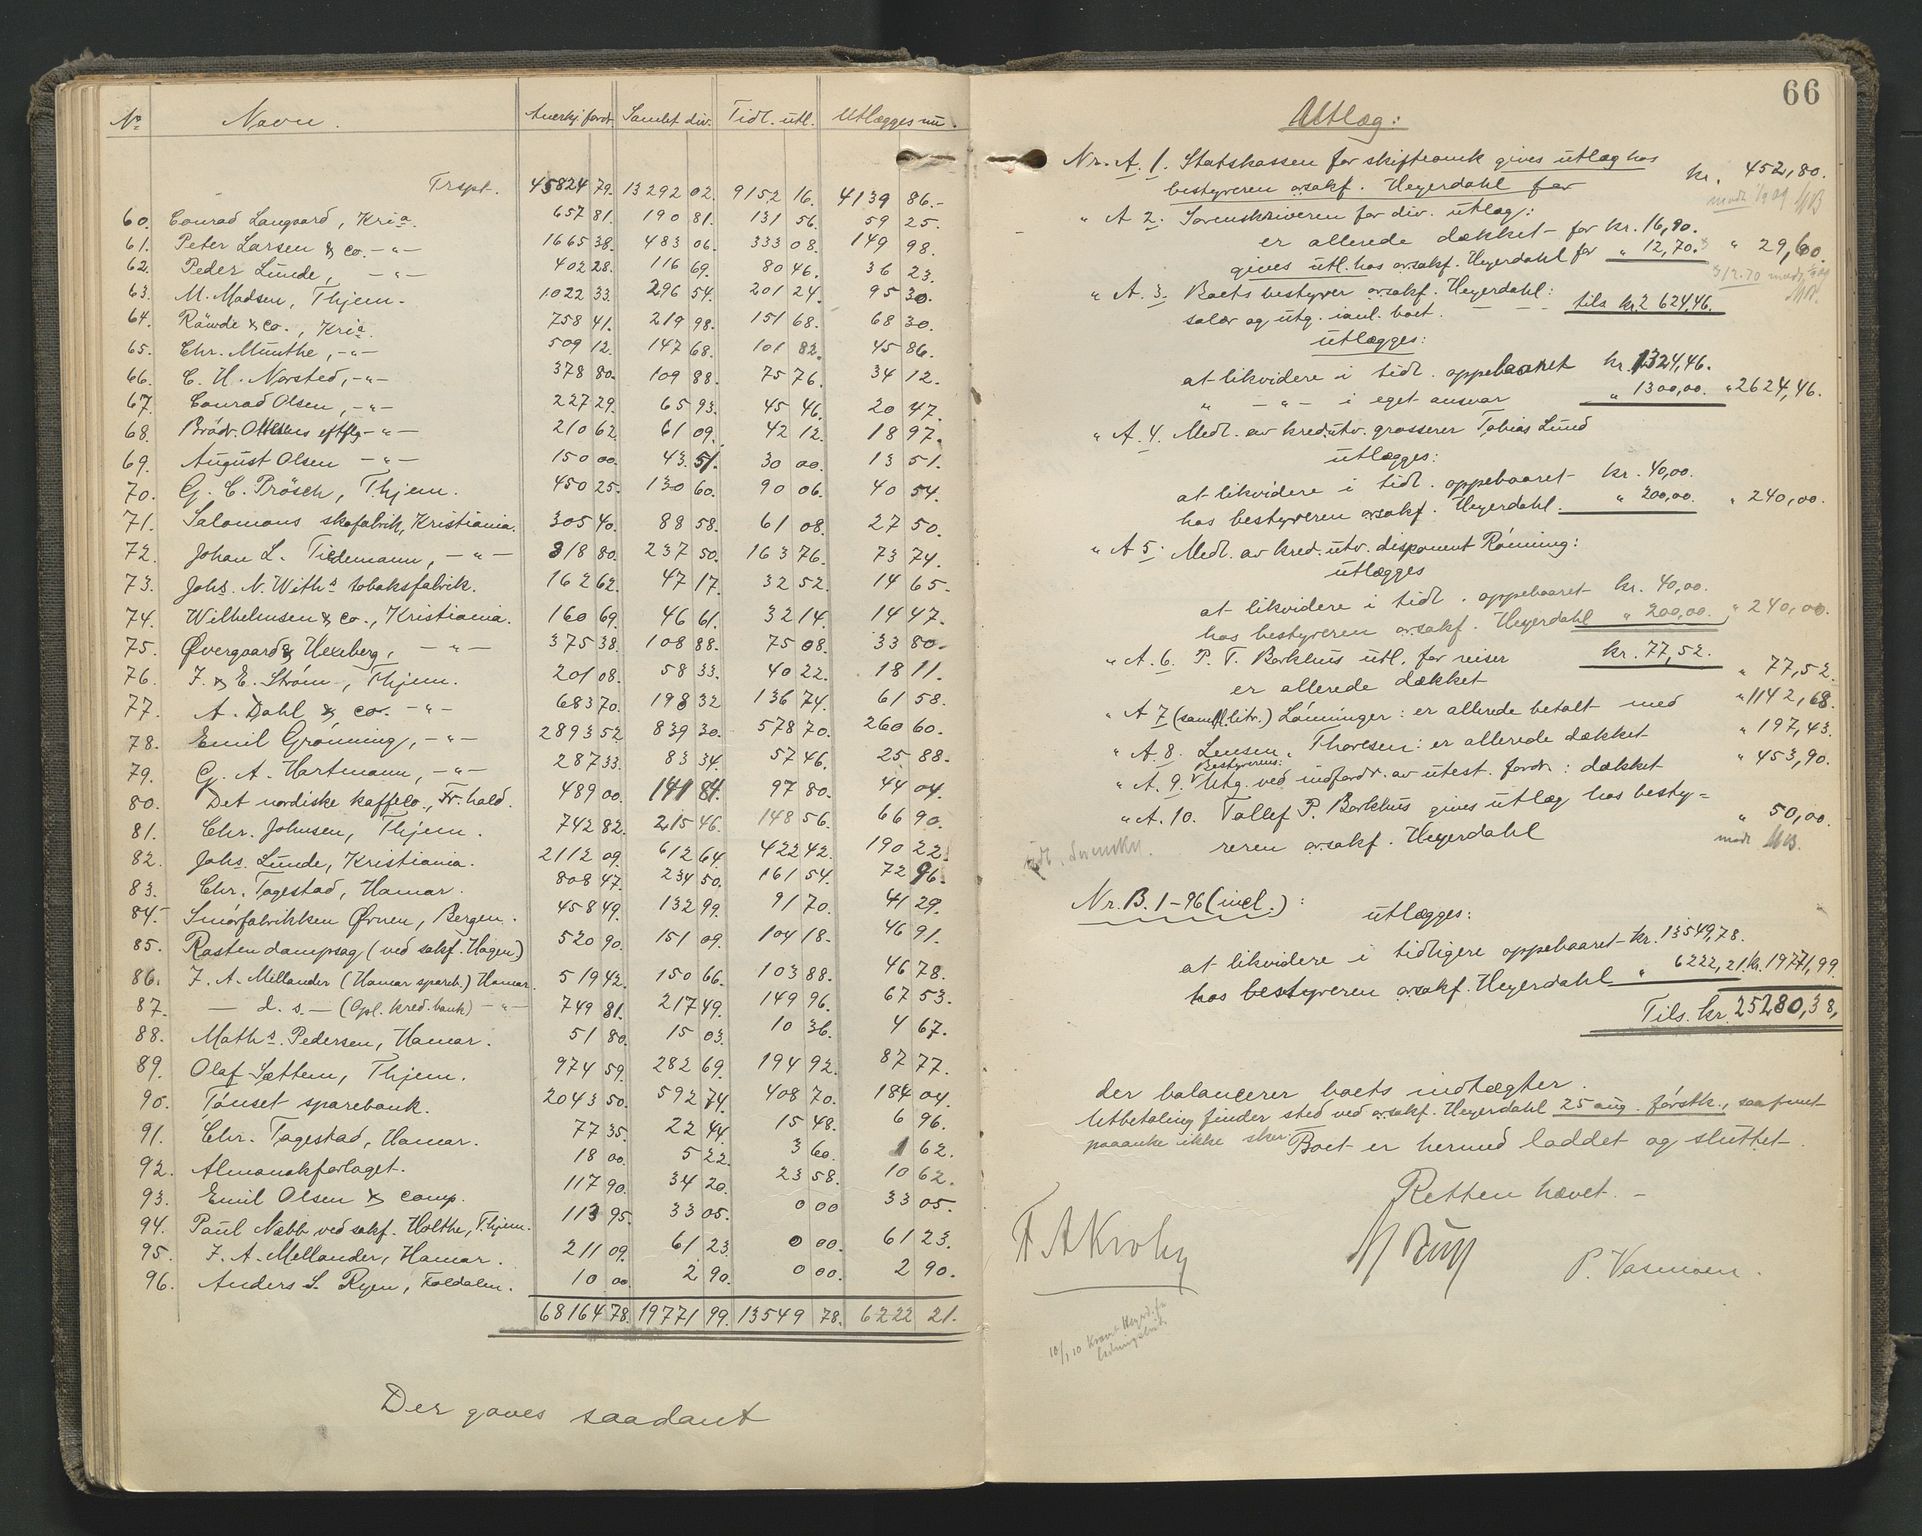 No Navn. Anerkj. fordr. Samlet div. Tidl. utl. Utlægges nu.
Trspt. 45824 79. 13292 02. 9152 16. 4139 86.-
60. Conrad Langaard, Kria. 657 81. 190 81. 131 56. 59 25.
61. Peter Larsen & co. -"- 1665 38. 483 06. 333 08. 149 98.
62. Peder Lunde, -"- 402 28. 116 69. 80 46. 36 23.
63. M. Madsen, Thjem. 1022 33. 296 54. 201 24. 95 30.
64. Räwde & co., Kria. 758 41. 219 98. 151 68. 68 30.
65. Chr. Munthe, -"- 509 12. 147 68. 101 82. 45 86.
66. C. H. Norsted, -"- 378 80. 109 88. 75 76. 34 12.
67. Conrad Olsen, -"- 227 29. 65 93. 45 46. 20 47.
68. Brødr. eftflg -"- 210 62. 61 09. 42 12. 18 97.
69. August Olsen -"- 150 00. 43 51. 30 00. 13 51.
70. G. C. Prösch, Thjem. 450 25. 130 60. 90 06. 40 54.
71. Salomons skofabrik, Kristiania. 305 40. 88 58. 61 08. 27 50.
72. Johan L. Tiedemann, -"- 818 80. 237 50. 163 76. 73 74.
73. Johs. N. Withs tobaksfabrik. 162 62. 47 17. 32 52. 14 65.
74. Wilhelmsen & co., Kristiania. 160 69. 46 61. 32 14. 14 47.
75. Øvergaard & Hexeberg, -"- 375 38. 108 88. 75 08. 33 80.
76. J. & E. Strøm, Thjem. 201 08. 58 33. 40 22. 18 11.
77. A. Dahl & co. -"- 683 70. 198 32 136 74. 61 58.
78. Emil Grønning, -"- 2893 52 839 30. 578 70. 260 60.
79. G. A. Hartmann, -"- 287 33. 83 34. 57 46. 25 88.
80. Det nordiske kaffeco., Fr.hald. 489 00. 141 84. 97 80. 44 04.
81. Chr. Johnsen, Thjem. 742 82. 215 46. 148 56. 66 90.
82. Johs. Lunde, Kristiania. 2112 09. 612 64. 422 42. 190 22.
83. Chr. Tagestad, Hamar. 808 47. 234 50. 161 54. 72 96.
84. Smørfabrikken Ørnen, Bergen. 458 49. 132 99. 91 70. 41 29.
85. Rasten dampsag (ved sakf. Hagen) 520 90. 151 09. 104 18. 46 91.
86. J. A. Mellander (Hamar spareb.) Hamar. 519 42. 150 66. 103 88. 46 78.
87. - d. s. - (Opl. kred.bank) -"- 749 81. 217 49. 149 96. 67 53.
88. Maths. Pedersen, Hamar. 51 80. 15 03. 10 36. 4 67.
89. Olaf Sættem, Thjem. 974 59. 282 69. 194 92. 87 77.
90. Tønset sparebank. 2043 50. 592 74. 408 70. 184 04.
91. Chr. Tagestad, Hamar. 77 35. 22 44. 15 48. 6 96.
92. Almanakforlaget. 18 00. 5 22. 3 60. 1 62.
93. Emil Olsen & comp. 117 90. 34 20. 23 58. 10 62.
94. Paul Næbb ved sakf. Holthe, Thjem. 113 95. 33 05. 0 00 33 05.
95. J. A. Mellander, Hamar. 211 09. 61 23. 0 00. 61 23.
96. Anders L. Ryen, Foldalen. 10 00. 2 90. 0 00. 2 90.
68164 78. 19771 99. 13549 78. 6222 21.
Der gaves saadant
66
Utlæg:
Nr. A. 1. Statskassen for skifteomk gives utlæg hos
bestyreren o.r.sakf. Heyerdahl for kr. 452,80.
" A 2. Sorenskriveren for div. utlæg:
er allerede dækket for kr. 16,90.
gives utl. hos o.r.sakf. Heyerdahl for " 12,70. " 29,60.
" A. 3. Boets bestyrer o.r.sakf. Heyerdahl:
salær og utg. i anl. boet. - - - tils kr. 2624,46.
utlægges:
at likvidere i tidl. oppebaaret kr. 1324,46.
" -"- i eget ansvar " 1300,00. " 2624,46.
" A. 4. Medl. av kred.utv. grosserer Tobias Lund
utlægges:
at likvidere i tidl. oppebaaret kr. 40,00.
hos bestyreren o.r.sakf. Heyerdahl. " 200,00. " 240,00.
" A 5: Medl. av kred.utv. disponent Rønning:
utlægges
at likvidere i tidl. oppebaaret kr. 40,00.
hos bestyreren o.r.sakf. Heyerdahl " 200,00. " 240,00.
" A. 6. P. T. Borkhus utl. for reiser kr. 77,52.
er allerede dækket " 77,52.
" A 7 (saml. litr.) Lønninger: er allerede betalt med " 1142,68.
" A. 8. Lensm. Thoresen: er allerede dækket " 197,43.
" A. 9. Bestyrerens utg. ved indfordr. av utest. fordr.: dækket " 453,90.
" A. 10. Tollef P. Borkhus gives utlæg hos besty=
reren o.r.sakf. Heyerdahl " 50,00.
Nr. B. 1-96 (incl.):
utlægges:
at likvidere i tidligere oppebaaret kr. 13549,78.
hos bestyreren o.r.sakf. Heyerdahl " 6222,21. kr. 19771,99.
Tils. kr. 25280,38,
der balancerer boets indtægter.
Utbetaling finder sted ved o.r.sakf. Heyerdahl 25 aug. førstk., saafremt
paaanke ikke sker. Boet er hermed loddet og sluttet.
Retten hævet. -
P. Vasmoen.